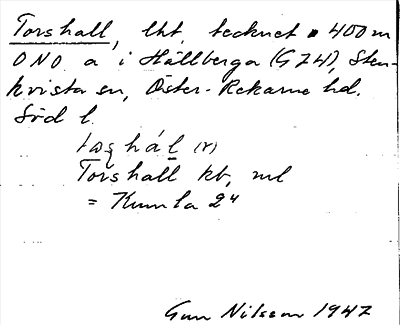 Torshall, lht, tecknet ▪ 400 m
ONO. a i Hällberga (GZ4), Sten-
kvista sn, Öster-Rekarne hd.
Söd l.
hál (r)
Torshall kb, ml
= Kumla 2⁴
Gun Nilsson 1947